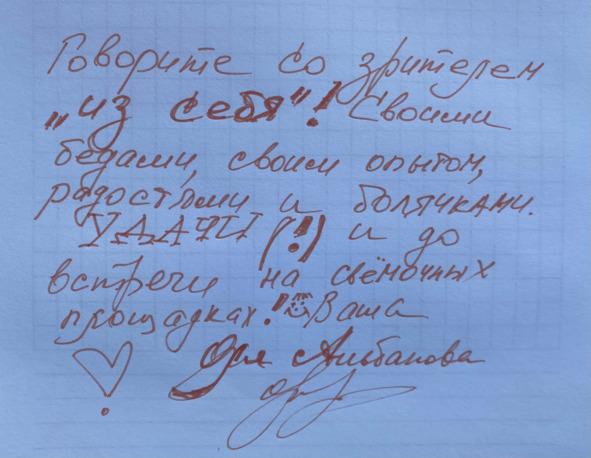 Говорите со зрителем
„из себя"! Своими
бедами, своим опытом,
радостями и болячками.
УДАЧИ (!) и до
встречи на съёмочных
площадках! Ваша
Оля Альбанова